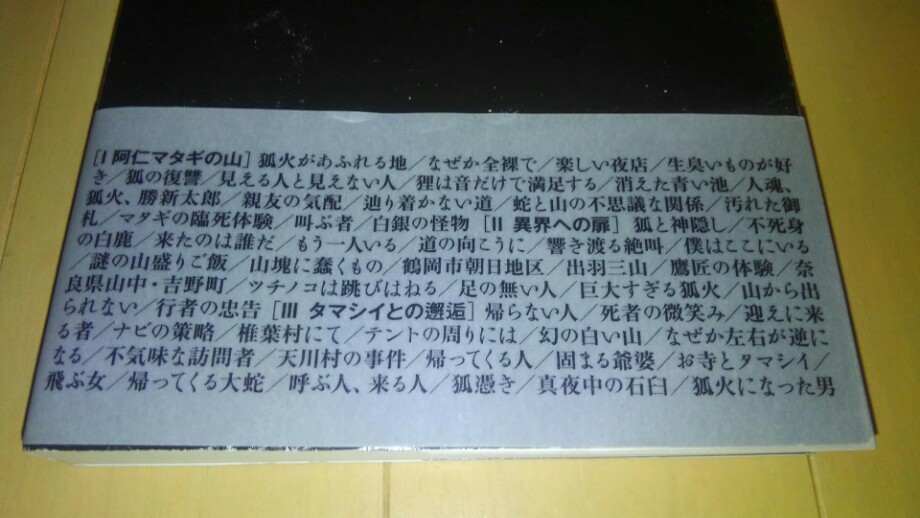 [I 阿仁マタギの山] 狐火があふれる地／なぜか全裸で／楽しい夜店／生臭いものが好
き／狐の復讐／見える人と見えない人／狸は音だけで満足する／消えた青い池／人魂、
狐火、勝新太郎／親友の気配／辿り着かない道／蛇と山の不思議な関係／汚れた御
札／マタギの臨死体験／叫ぶ者／白銀の怪物 [II 異界への扉] 狐と神隠し／不死身
の白鹿／来たのは誰だ／もう一人いる／道の向こうに／響き渡る絶叫／僕はここにいる
／謎の山盛りご飯／山塊に蠢くもの／鶴岡市朝日地区／出羽三山／鷹匠の体験／奈
良県山中・吉野町／ツチノコは跳びはねる／足の無い人／巨大すぎる狐火／山から出
られない／行者の忠告 [III タマシイとの邂逅] 帰らない人／死者の微笑み／迎えに来
る者／ナビの策略／椎葉村にて／テントの周りには／幻の白い山／なぜか左右が逆に
なる／不気味な訪問者／天川村の事件／帰ってくる人／固まる爺婆／お寺とタマシイ／
飛ぶ女／帰ってくる大蛇／呼ぶ人、来る人／狐憑き／真夜中の石臼／狐火になった男